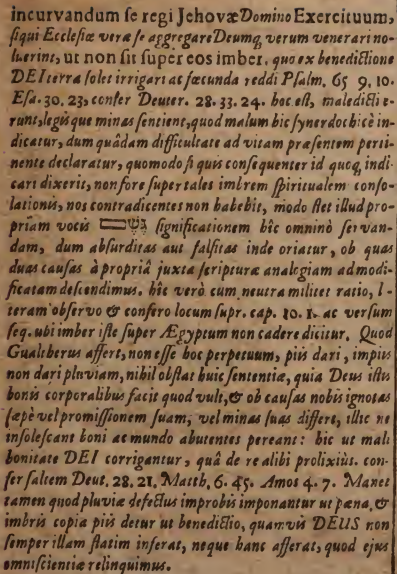 incurvandum ſe regi Jehovæ Domino Exercituum,
ſiqui Eccleſiæ veræ ſe aggregare Deumq, verum venerari no-
luerint, ut non ſit ſuper eos imber, quo ex benedictione
DEI terra ſolet irrigari ac fœcunda reddi Pſalm. 65 9. 10.
Eſa. 30. 23, confer Deuter. 28. 33. 24. hoc eſt, maledicti e-
runt, legisque minas ſentient, quod malum hic ſynecdochicè in-
dicatur, dum quâdam difficultate ad vitam præſentem perti-
nente declaratur, quomodo ſi quis conſequenter id quoq, indi-
cari dixerit, non fore ſuper tales imbrem ſpiritualem conſo-
lationis, nos contradicentes non habebit, modo ſtet illud pro-
priam vocis ſignificationem hîc omninò ſervan-
dam, dum abſurditas aut falſitas inde oriatur, ob quas
duas cauſas à propriâ juxta ſcripturæ analogiam ad modi-
ficatam deſcendimus. hîc verò cum neutra militet ratio, l-
teram obſervo & confero locum ſupr. cap. 10. 1. ac verſum
ſeq. ubi imber iſte ſuper Ægyptum non cadere dicitur. Quod
Gualtherus affert, non eſſe hoc perpetuum, piis dari, impiis
non dari pluviam, nihil obſtat huic ſententiæ, quia Deus iſtis
bonis corporalibus facit quod vult, & ob cauſas nobis ignotas
ſæpè vel promiſſionem ſuam, vel minas ſuas differt, illic ne
inſoleſcant boni ac mundo abutentes pereant: hic ut mali
bonitate DEI corrigantur, quâ de re alibi prolixiùs. con-
fer ſaltem Deut. 28. 21. Matth. 6. 45. Amos 4. 7. Manet
tamen quod pluviæ defectus improbis imponantur ut pœna, &
imbris copia piis detur ut benedictio, quamvis DEUS non
ſemper illam ſtatim inferat, neque hanc afferat, quod ejus
omniſcientiæ relinquimus.